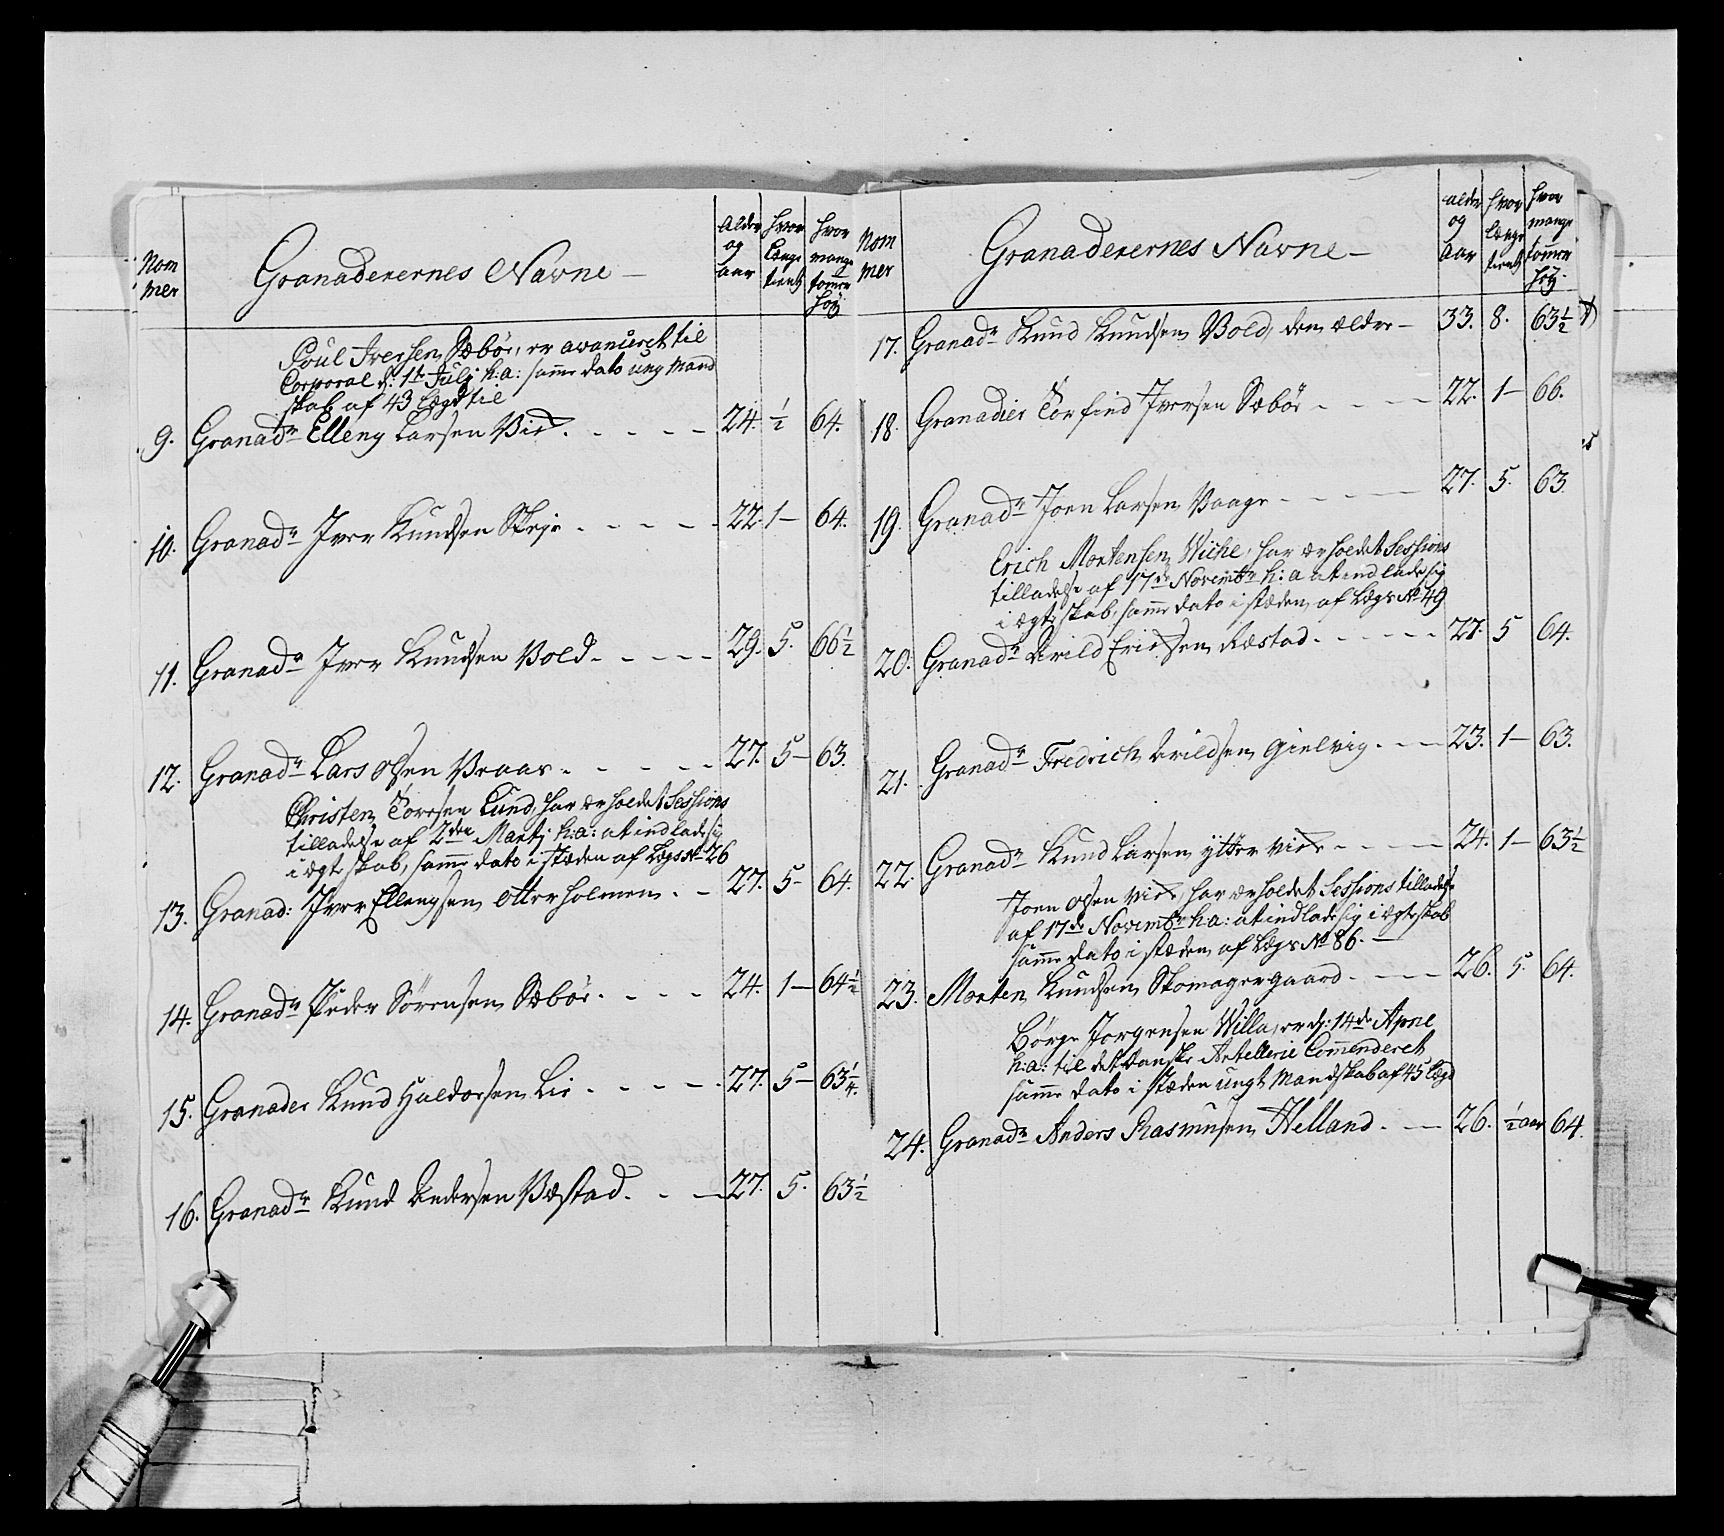 Nom
mer
Granaderernes Navne —
alder
og
aar
hvor
længe
tient
hvor
mange
tommer
høy
Poul Iversen Sæbøe, er avanceret til
Corporal d: 1te Julj h:a: samme dato ung Mand
skab af 43 Lægd til
9. Granadr Elleng Larsen Vie. 24. ½ 64.
10. Granadr Iver Knudsen Skeje 22. 1 — 64.
11. Granadr Iver Knudsen Vold 29. 5. 66½
12. Granadr Lars Olsen Vraas 27. 5 — 63.
Christen Toresen Lund, har erholdet Sessions
tilladelse af 2den Martj h:a: at indlade sig
i ægteskab, samme dato i stæden af Lægs No 26
13. Granad: Iver Ellengsen Otterholmen 27. 5 - 64.
14. Granadr Peder Sørensen Sæbøe 24. 1 — 64½
15. Granader Knud Haldorsen Lie 27. 5 — 63¼.
16. Granadr Knud Andersen Væstad 27. 5. 63½
Nom
mer
Granaderernes Navne —
alder
og
Aar
hvor
længe
tient
hvor
mange
tommer
høy.
17. Granadr Knud Knudsen Vold, den ældre — 33. 8. 63½
18. Granadier Torfind Iversen Sæbøe 22. 1 — 66.
19. Granadr Joen Larsen Vaage 27. 5. 63
Erich Mortensen Wiche, har erholdet Sessions
tilladelse af 17de Novembr h:a at indlade sig
i ægteskab, samme dato i stæden af Lægs No 49
20. Granadr Arild Erichsen Ræstad 27. 5 64.
21. Granadr Fredrich Arildsen Gielvig 23. 1 — 63.
22. Granadr Knud Larsen ytter Vie 24. 1 — 63½
Joen Olsen Vie har erholdet Sessions tilladelse
af 17de Novembr h:a: at indlade sig i ægteskab
samme dato i stæden af Lægs No 86. —
23. Morten Knudsen Skomagergaard 26. 5. 64.
Børge Jørgensen Willa, er d: 14de Aprie
h:a: til det Danske Artellerie Commenderet
samme dato i stæden ungt Mandskab af 45 Lægd
24. Granadr Anders Rasmusen Helland 26. ½ aar 64.